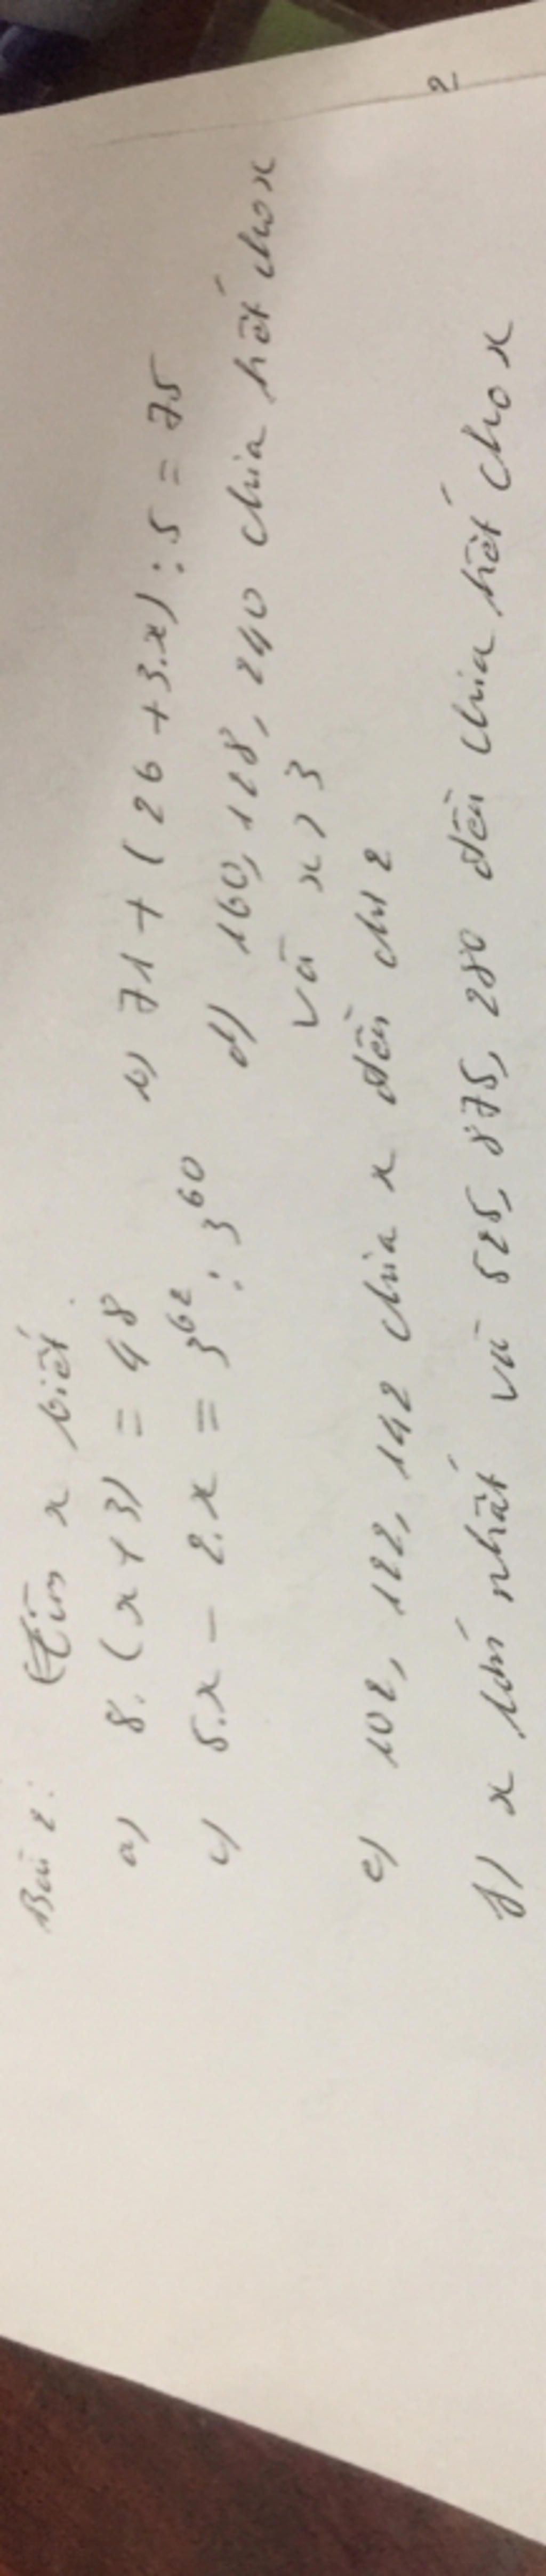 Bài 2: Tìm x biết.
a) 8.(x+3) = 48 b) 71 + (26 + 3.x) : 5 = 75
c) 5.x - 2.x = 3^62 : 3^60 d) 160, 128, 240 chia hết cho x
và x > 3
e) 102, 122, 142 chia x đều dư 2
f) x lớn nhất và 525, 875, 280 đều chia hết cho x
2